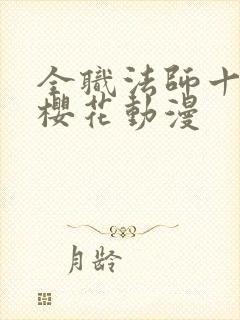 全職法師十
櫻花動漫
月齡